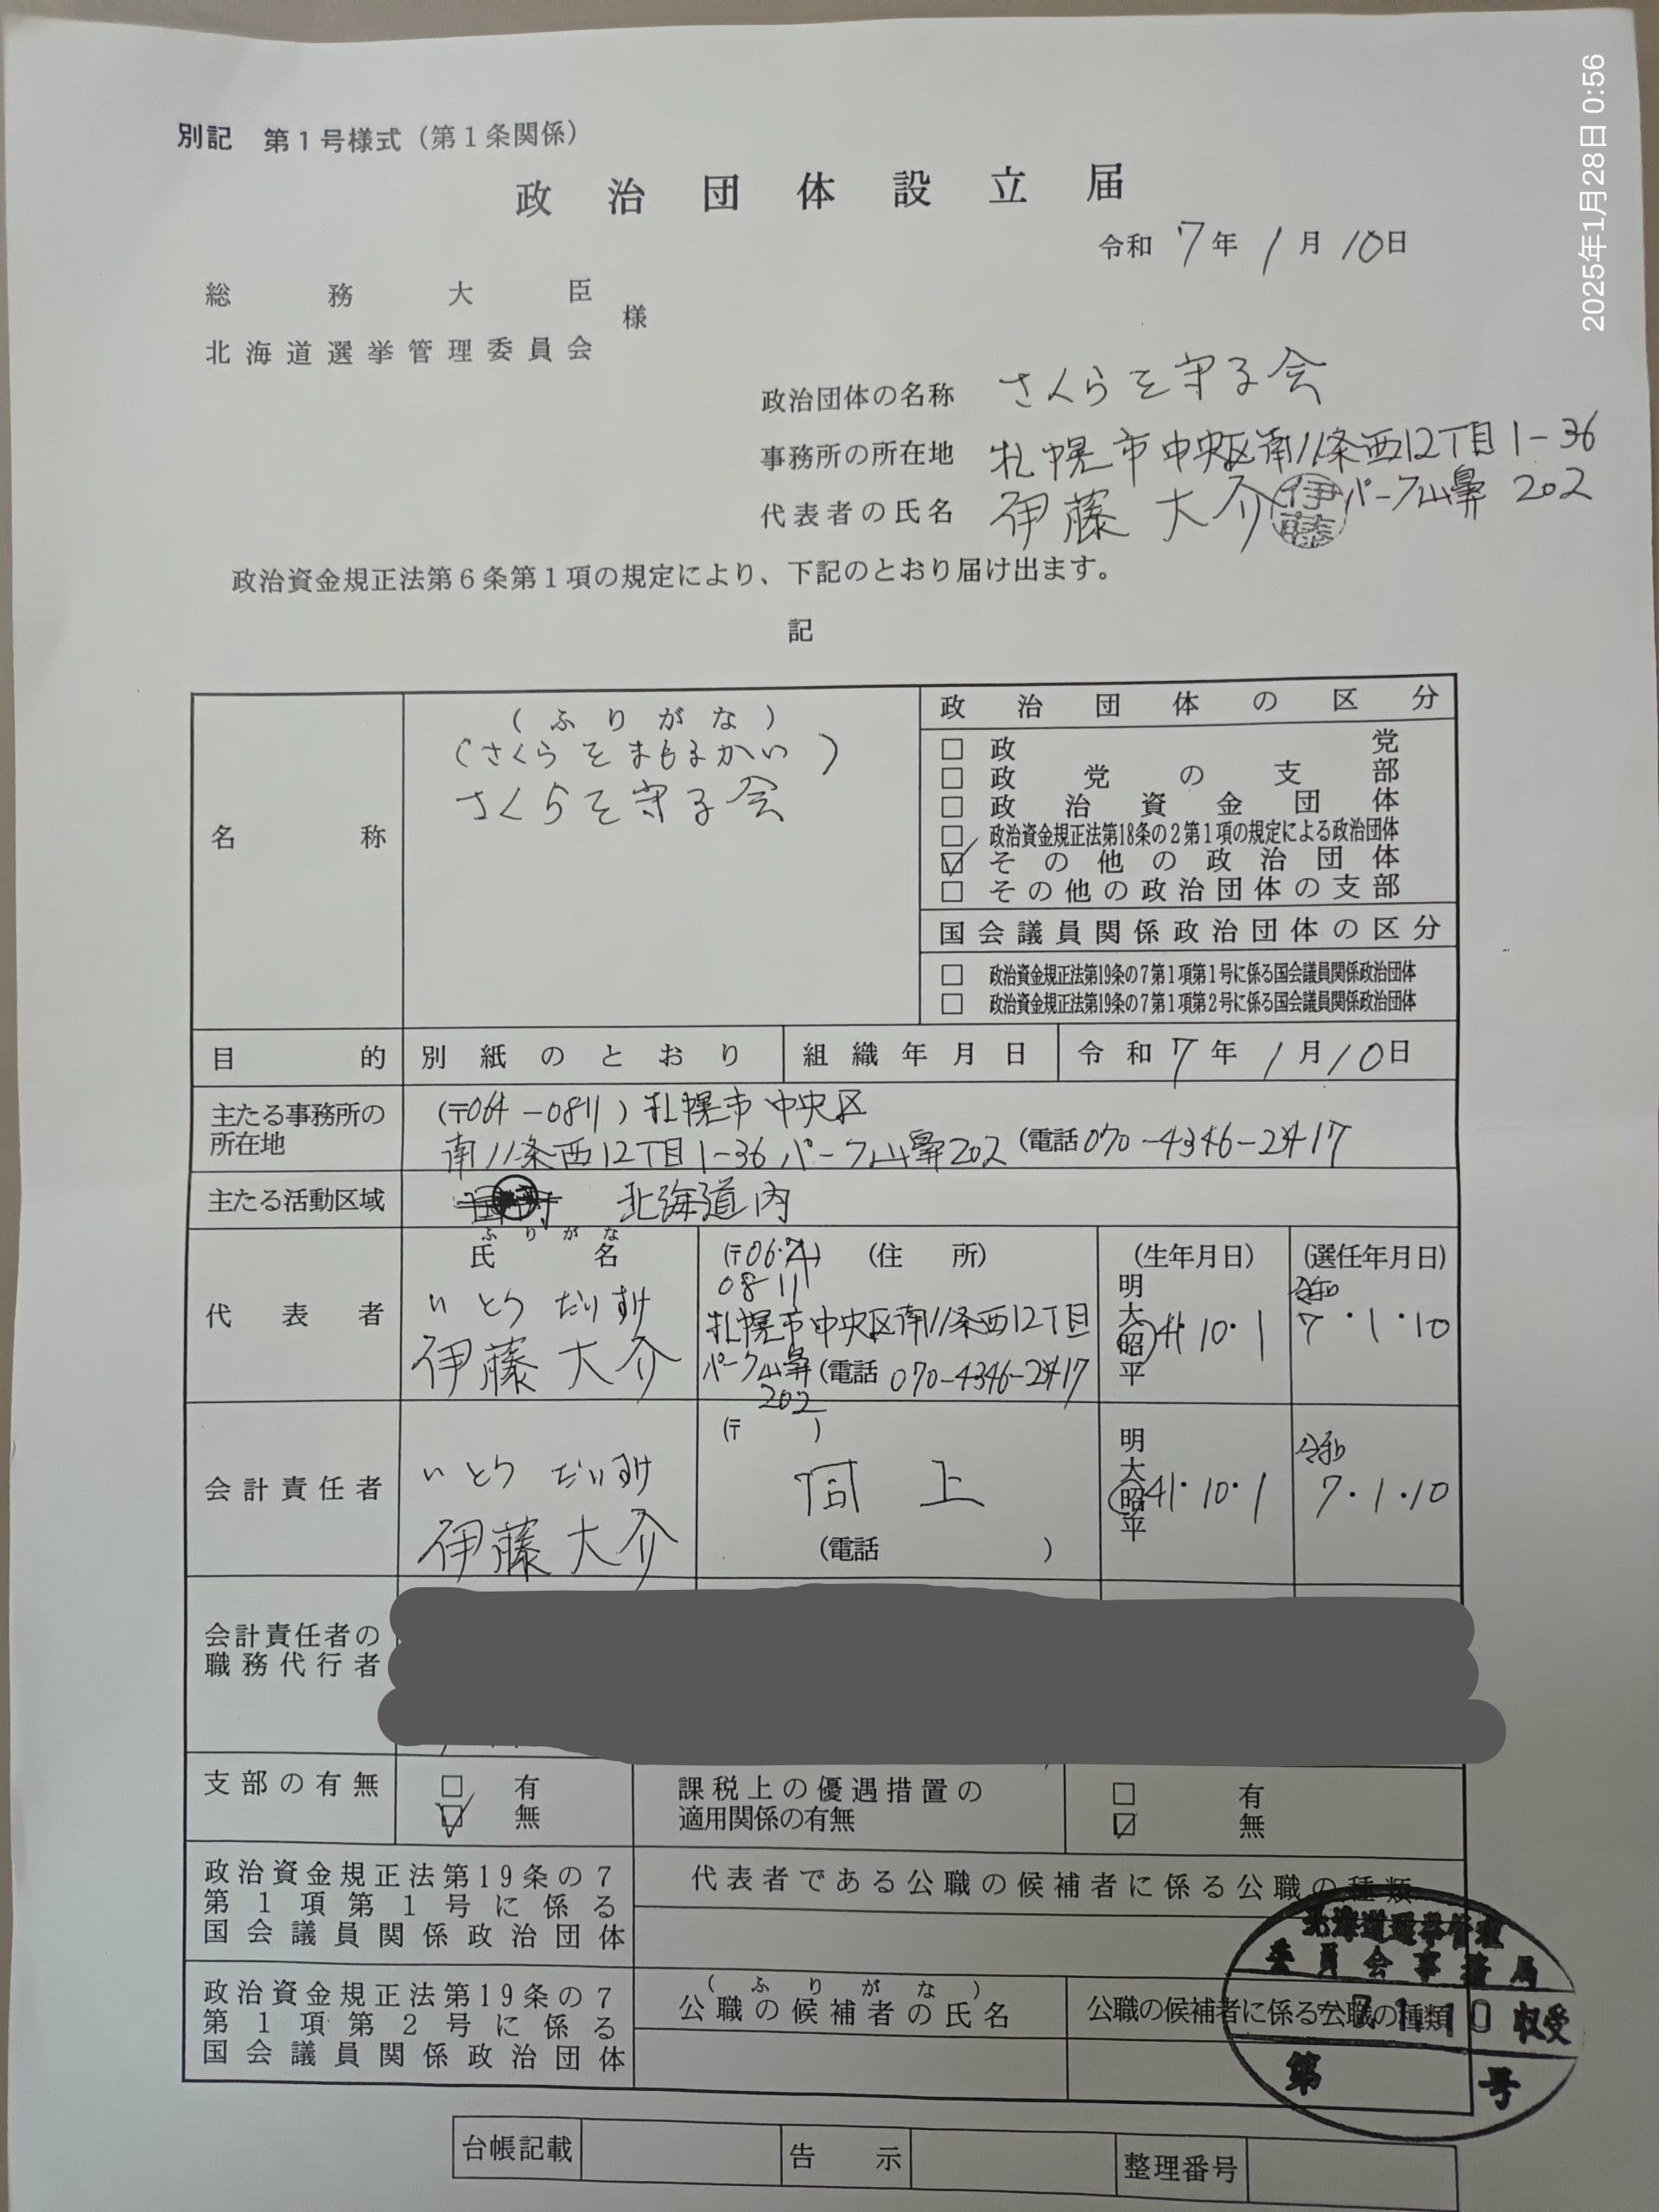 2025年1月28日 0:56
別記　第1号様式（第1条関係）
政治団体設立届
令和 7年 1月 10日
総務大臣
様
北海道選挙管理委員会
政治団体の名称 さくらを守る会
事務所の所在地 札幌市中央区南11条西12丁目1-36
パーク山鼻 202
代表者の氏名 伊藤 大介
伊藤
政治資金規正法第6条第1項の規定により、下記のとおり届け出ます。
記
名称
（ふりがな）
（さくらをまもるかい）
さくらを守る会
政治団体の区分
□ 政党
□ 政党の支部
□ 政治資金団体
□ 政治資金規正法第18条の2第1項の規定による政治団体
☑ その他の政治団体
□ その他の政治団体の支部
国会議員関係政治団体の区分
□ 政治資金規正法第19条の7第1項第1号に係る国会議員関係政治団体
□ 政治資金規正法第19条の7第1項第2号に係る国会議員関係政治団体
目的 別紙のとおり 組織年月日 令和 7年 1月 10日
主たる事務所の
所在地
(〒064-0811) 札幌市中央区
南11条西12丁目1-36 パーク山鼻202 (電話070-4346-2417
主たる活動区域 北海道内
代表者
ふりがな
氏名
いとう だいすけ
伊藤 大介
(〒064) (住所)
0811
札幌市中央区南11条西12丁目
パーク山鼻 (電話 070-4346-2417
202
(生年月日)
明
大
昭 41・10・1
平
(選任年月日)
令和
7・1・10
会計責任者
いとう だいすけ
伊藤 大介
(〒 )
同上
(電話 )
明
大
昭 41・10・1
平
令和
7・1・10
会計責任者の
職務代行者
支部の有無
□ 有
☑ 無
課税上の優遇措置の
適用関係の有無
□ 有
☑ 無
政治資金規正法第19条の7
第1項第1号に係る
国会議員関係政治団体
代表者である公職の候補者に係る公職の種類
政治資金規正法第19条の7
第1項第2号に係る
国会議員関係政治団体
（ふりがな）
公職の候補者の氏名
公職の候補者に係る公職の種類
北海道選挙管理
委員会事務局
7.1.10 収受
第 号
台帳記載 告示 整理番号